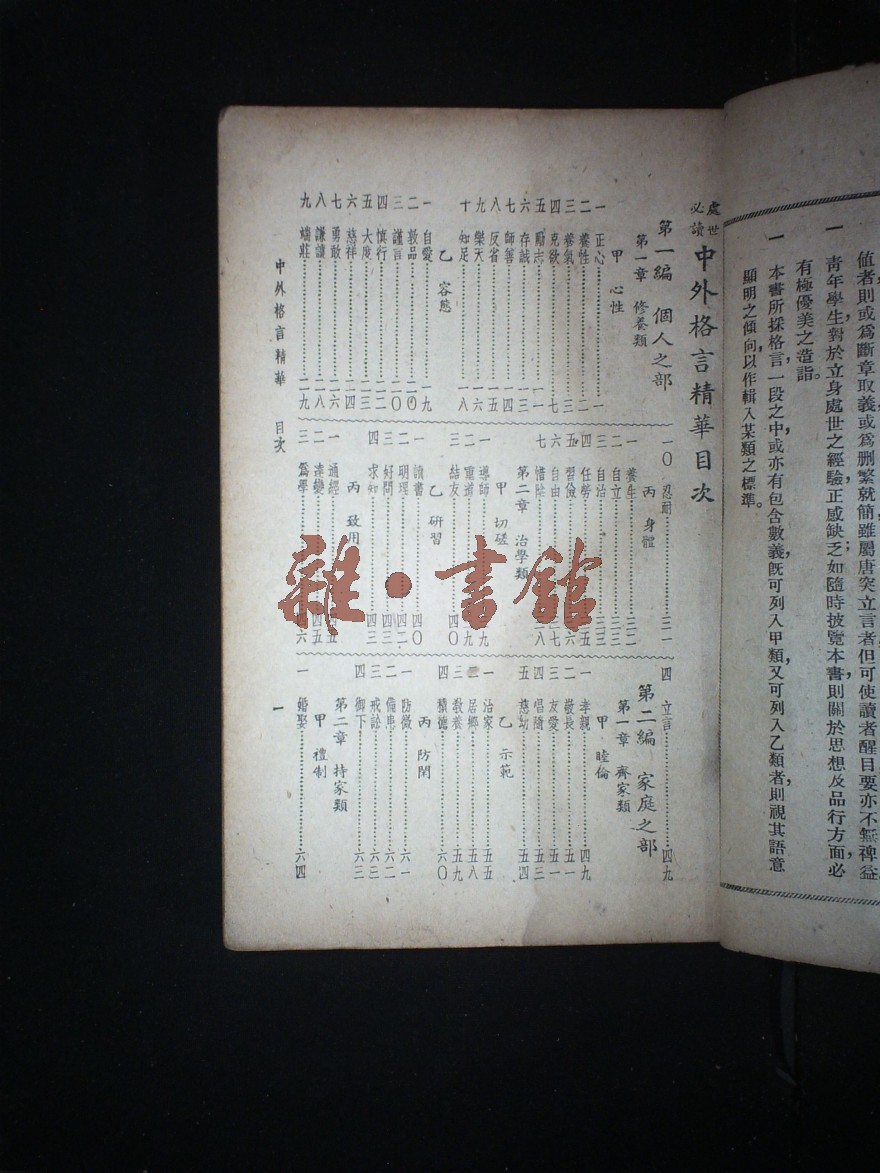 值者則或爲斷章取義或爲刪繁就簡雖屬唐突立言者但可使讀者醒目要亦不無裨益
一 青年學生對於立身處世之經驗，正感缺乏；如隨時披覽本書，則關於思想及品行方面，必
有極優美之造詣。
一 本書所採格言，一段之中，或亦有包含數義，既可列入甲類，又可列入乙類者，則視其語意
顯明之傾向，以作輯入某類之標準。
處世必讀 中外格言精華目次
第一編 個人之部
第一章 修養類
甲 心性
一 正心……一
二 養性……二
三 養氣……三
四 克欲……七
五 勵志……一一
六 存誠……一三
七 師善……一四
八 反省……一五
九 樂天……一六
十 知足……一八
乙 容態
一 自愛……一九
二 敦品……二〇
三 謹言……二〇
四 慎行……二二
五 大度……二三
六 慈祥……二四
七 勇敢……二六
八 謙讓……二八
九 端莊……二九
一〇 忍耐……三一
丙 身體
一 養生……三二
二 自立……三三
三 自治……三三
四 任勞……三五
五 習儉……三六
六 自由……三七
七 惜陰……三八
第二章 治學類
甲 切磋
一 導師……三九
二 重道……三九
三 結友……四〇
乙 研習
一 讀書……四〇
二 明理……四二
三 好問……四三
四 求知……四三
丙 致用
一 通經……四五
二 達變……四五
三 爲學……四六
四 立言……四九
第二編 家庭之部
第一章 齊家類
甲 睦倫
一 孝親……四九
二 敬長……五一
三 友愛……五一
四 倡隨……五三
五 慈幼……五四
乙 示範
一 治家……五五
二 居鄉……五八
三 教養……五九
四 積德……六〇
丙 防閑
一 防微……六一
二 備患……六二
三 戒訟……六三
四 御下……六三
第二章 持家類
甲 禮制
一 婚娶……六四
中外格言精華 目次
一
雜·書館